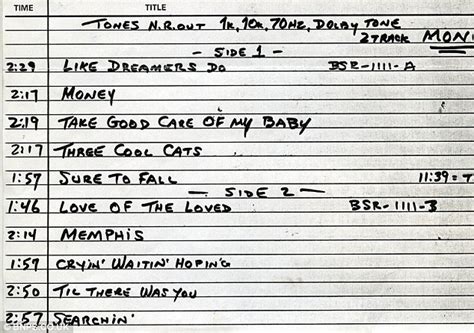 TIME TITLE
TONES N.R. OUT 1K, 10K, 70HZ, DOLBY TONE
2 TRACK MON
- SIDE 1 -
2:29 LIKE DREAMERS DO BSR-1111-A
2:17 MONEY
2:19 TAKE GOOD CARE OF MY BABY
2:17 THREE COOL CATS
1:57 SURE TO FALL 11:39 = T
- SIDE 2 -
1:46 LOVE OF THE LOVED BSR-1111-B
2:14 MEMPHIS
1:57 CRYIN' WAITIN' HOPING
2:50 TIL THERE WAS YOU
2:57 SEARCHIN'
© BNPS.CO.UK